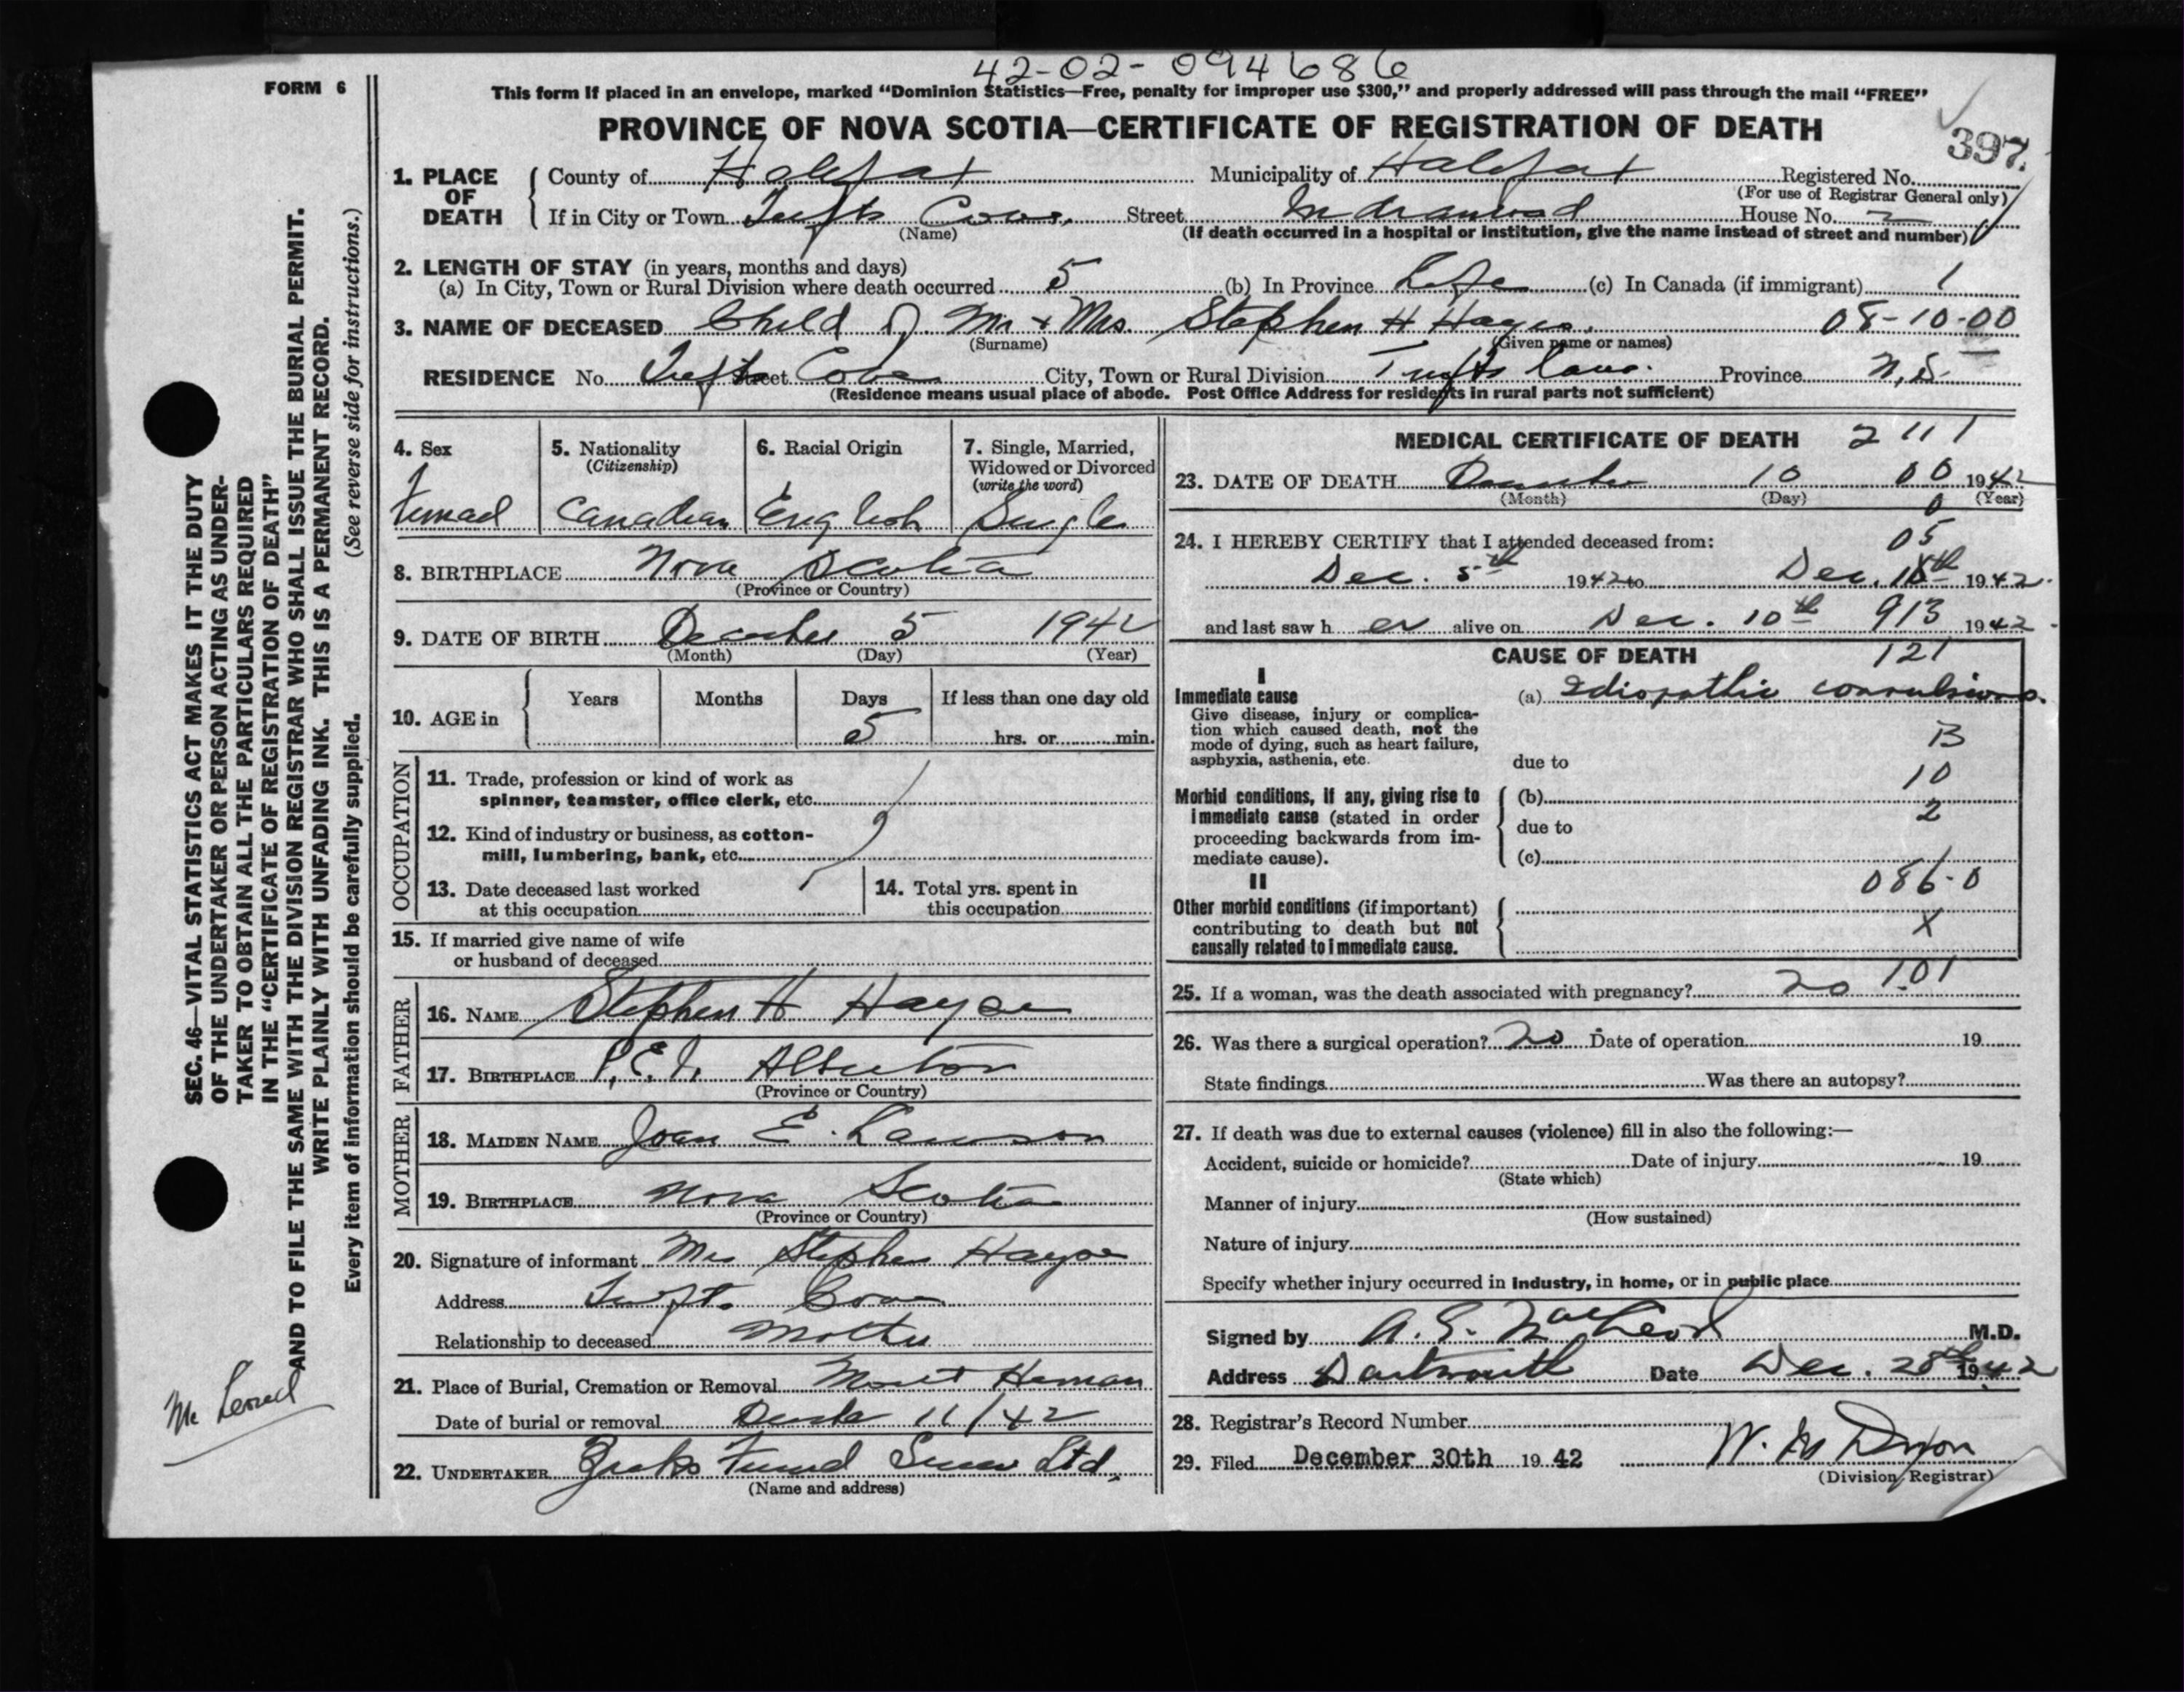 42-02-094686
FORM 6
This form if placed in an envelope, marked “Dominion Statistics—Free, penalty for improper use $300,” and properly addressed will pass through the mail “FREE”
PROVINCE OF NOVA SCOTIA—CERTIFICATE OF REGISTRATION OF DEATH
397.
1. PLACE OF DEATH
County of Halifax Municipality of Halifax Registered No.
(For use of Registrar General only)
If in City or Town Tufts Cove Street House No.
(Name)
(If death occurred in a hospital or institution, give the name instead of street and number)
2. LENGTH OF STAY (in years, months and days)
(a) In City, Town or Rural Division where death occurred 5 (b) In Province Life (c) In Canada (if immigrant) 1
3. NAME OF DECEASED Child of Mr + Mrs. Stephen H Hayes. 08-10-00
(Surname) (Given name or names)
RESIDENCE No. Tufts Street Cove City, Town or Rural Division Tufts Cove. Province N.S.
(Residence means usual place of abode. Post Office Address for residents in rural parts not sufficient)
4. Sex
Femael
5. Nationality
(Citizenship)
Canadian
6. Racial Origin
English
7. Single, Married,
Widowed or Divorced
(write the word)
Single
8. BIRTHPLACE Nova Scotia
(Province or Country)
9. DATE OF BIRTH December 5 1942
(Month) (Day) (Year)
10. AGE in
Years Months Days If less than one day old
5 hrs. or min.
OCCUPATION
11. Trade, profession or kind of work as
spinner, teamster, office clerk, etc.
12. Kind of industry or business, as cotton-
mill, lumbering, bank, etc.
13. Date deceased last worked
at this occupation
14. Total yrs. spent in
this occupation
15. If married give name of wife
or husband of deceased
FATHER
16. NAME Stephen H Hayse
17. BIRTHPLACE P.E.I. Alberton
(Province or Country)
MOTHER
18. MAIDEN NAME Joan E. Lawson
19. BIRTHPLACE Nova Scotia
(Province or Country)
20. Signature of informant Mrs Stephen Hayse
Address Tufts Cove
Relationship to deceased Mother
21. Place of Burial, Cremation or Removal Mount Herman
Date of burial or removal 11/42
22. UNDERTAKER Ltd.
(Name and address)
MEDICAL CERTIFICATE OF DEATH 2111
23. DATE OF DEATH December 10 00 1942
(Month) (Day) (Year)
0
24. I HEREBY CERTIFY that I attended deceased from:
05
Dec. 5th 1942 to Dec. 10th 1942.
and last saw h er alive on Dec. 10th 913 1942.
CAUSE OF DEATH 121
I
Immediate cause
Give disease, injury or complica-
tion which caused death, not the
mode of dying, such as heart failure,
asphyxia, asthenia, etc.
(a) Idiopathic convulsions.
B
due to
10
Morbid conditions, if any, giving rise to
immediate cause (stated in order
proceeding backwards from im-
mediate cause).
(b)
2
due to
(c)
086-0
II
Other morbid conditions (if important)
contributing to death but not
causally related to immediate cause.
X
25. If a woman, was the death associated with pregnancy? no 101
26. Was there a surgical operation? no Date of operation 19
State findings Was there an autopsy?
27. If death was due to external causes (violence) fill in also the following:—
Accident, suicide or homicide? Date of injury 19
(State which)
Manner of injury
(How sustained)
Nature of injury
Specify whether injury occurred in industry, in home, or in public place
Signed by A. G. MacLeod M.D.
Address Dartmouth Date Dec. 28th 1942
28. Registrar's Record Number
29. Filed December 30th 1942
(Division Registrar)
SEC. 46—VITAL STATISTICS ACT MAKES IT THE DUTY
OF THE UNDERTAKER OR PERSON ACTING AS UNDER-
TAKER TO OBTAIN ALL THE PARTICULARS REQUIRED
IN THE “CERTIFICATE OF REGISTRATION OF DEATH”
AND TO FILE THE SAME WITH THE DIVISION REGISTRAR WHO SHALL ISSUE THE BURIAL PERMIT.
WRITE PLAINLY WITH UNFADING INK. THIS IS A PERMANENT RECORD.
Every item of information should be carefully supplied. (See reverse side for instructions.)